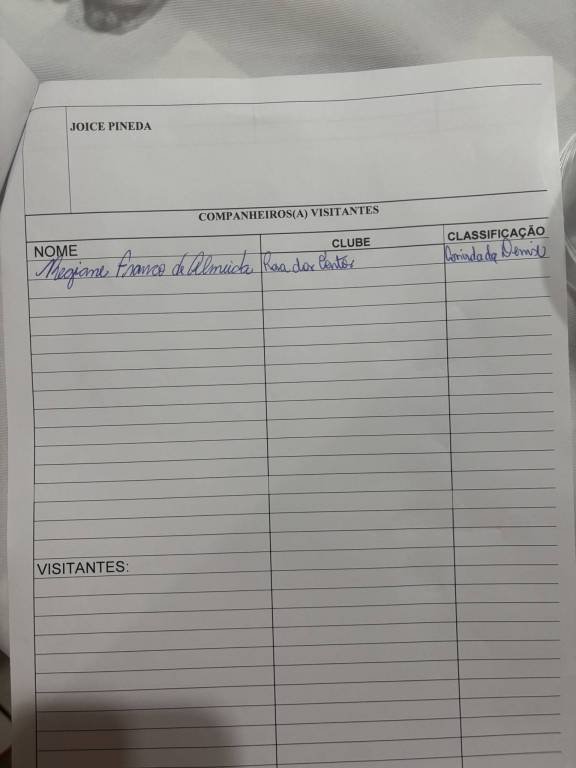 JOICE PINEDA
COMPANHEIROS(A) VISITANTES
NOME CLUBE CLASSIFICAÇÃO
Megiane Franco de Almeida Rosa dos Ventos
VISITANTES: